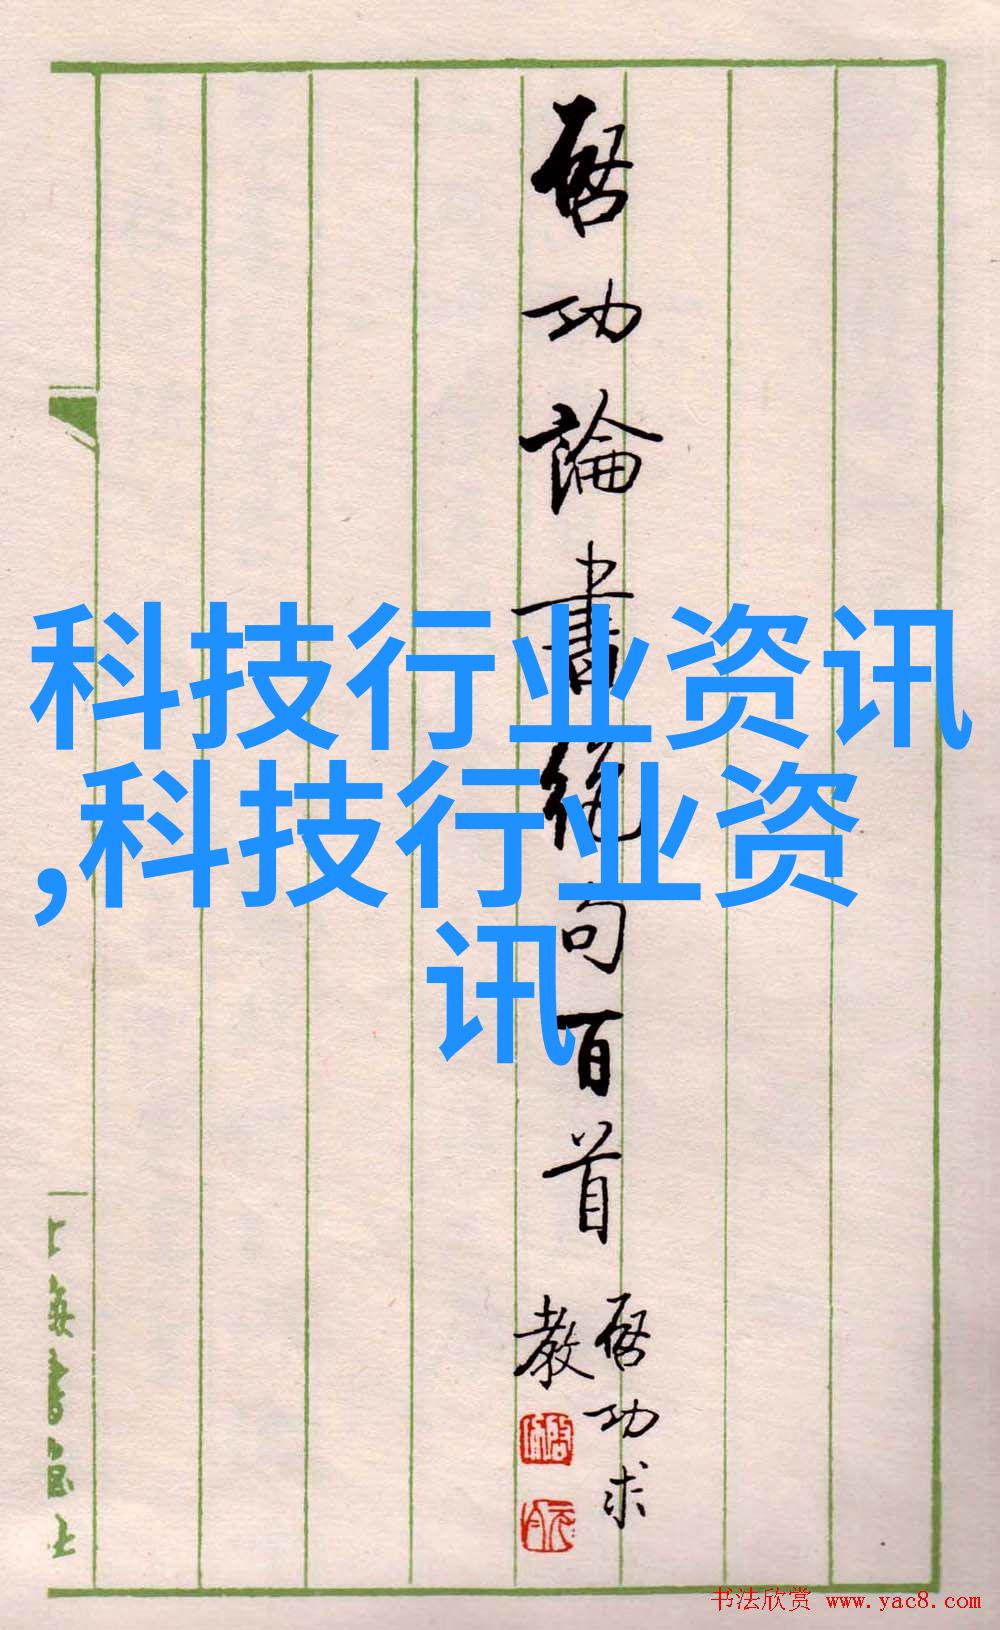 启功論書絶句百首
启功求
教
科技行业资讯
,科技行业资
讯
上海書画社
书法欣赏 www.yac8.com